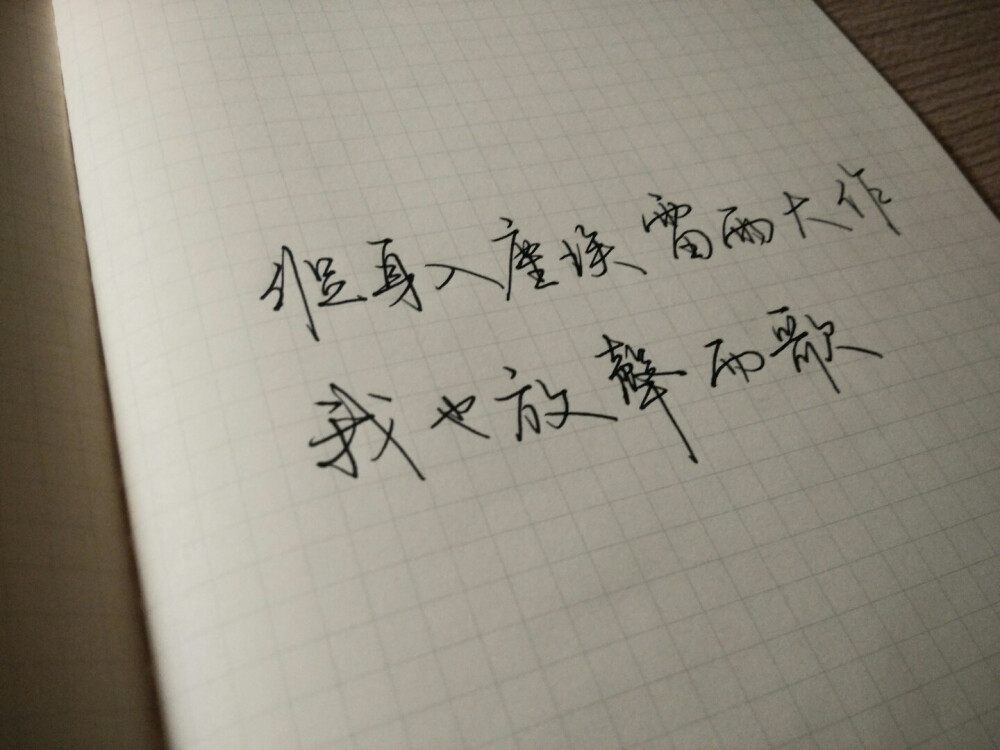 縱身入塵埃 雷雨大作
我也放聲而歌